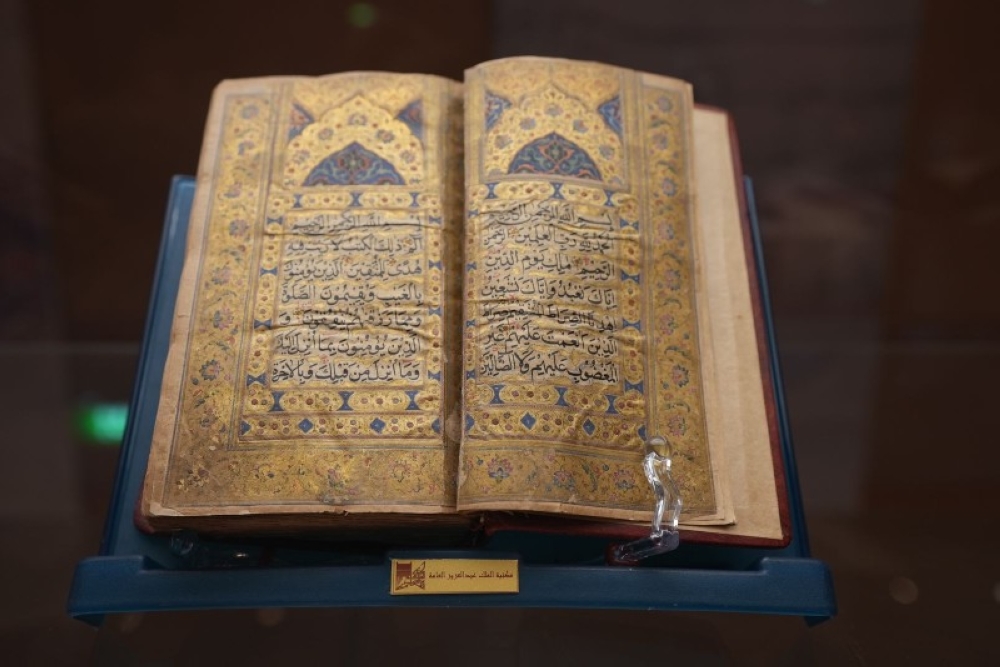 بِسْمِ اللهِ الرَّحْمٰنِ الرَّحِيمِ
اَلْحَمْدُ لِلّٰهِ رَبِّ الْعٰلَمِينَ الرَّحْمٰنِ
الرَّحِيمِ مٰلِكِ يَوْمِ الدِّينِ
اِيَّاكَ نَعْبُدُ وَاِيَّاكَ نَسْتَعِينُ
اِهْدِنَا الصِّرَاطَ الْمُسْتَقِيمَ صِرَاطَ
الَّذِينَ اَنْعَمْتَ عَلَيْهِمْ غَيْرِ
الْمَغْضُوبِ عَلَيْهِمْ وَلَا الضَّالِّينَ
بِسْمِ اللهِ الرَّحْمٰنِ الرَّحِيمِ
الٓمٓ ذٰلِكَ الْكِتٰبُ لَا رَيْبَ فِيهِ
هُدًى لِلْمُتَّقِينَ الَّذِينَ يُؤْمِنُونَ
بِالْغَيْبِ وَيُقِيمُونَ الصَّلٰوةَ
وَمِمَّا رَزَقْنٰهُمْ يُنْفِقُونَ وَ
الَّذِينَ يُؤْمِنُونَ بِمَا اُنْزِلَ اِلَيْكَ
وَمَا اُنْزِلَ مِنْ قَبْلِكَ وَبِالْاٰخِرَةِ
مكتبة الملك عبدالعزيز العامة